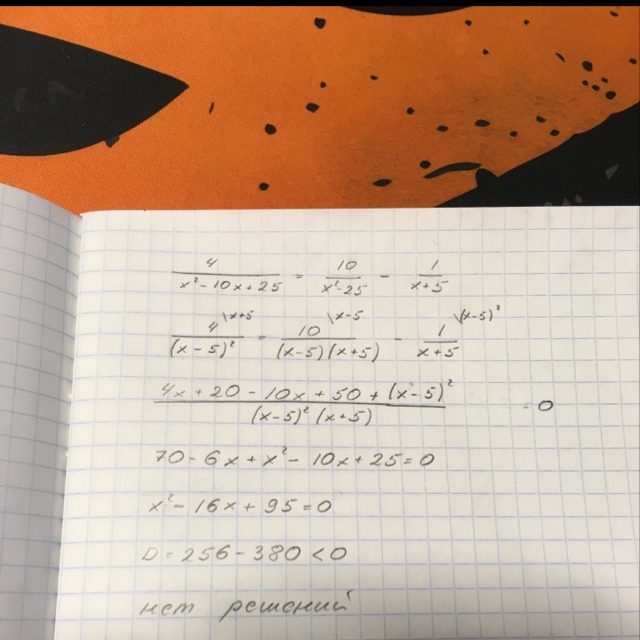 4/(x²-10x+25) - 10/(x²-25) - 1/(x+5)
4\x+5/(x-5)² - 10\x-5/((x-5)(x+5)) - 1\(x-5)²/(x+5)
(4x+20-10x+50+(x-5)²)/((x-5)²(x+5)) = 0
70-6x+x²-10x+25=0
x²-16x+95=0
D=256-380<0
нет решений